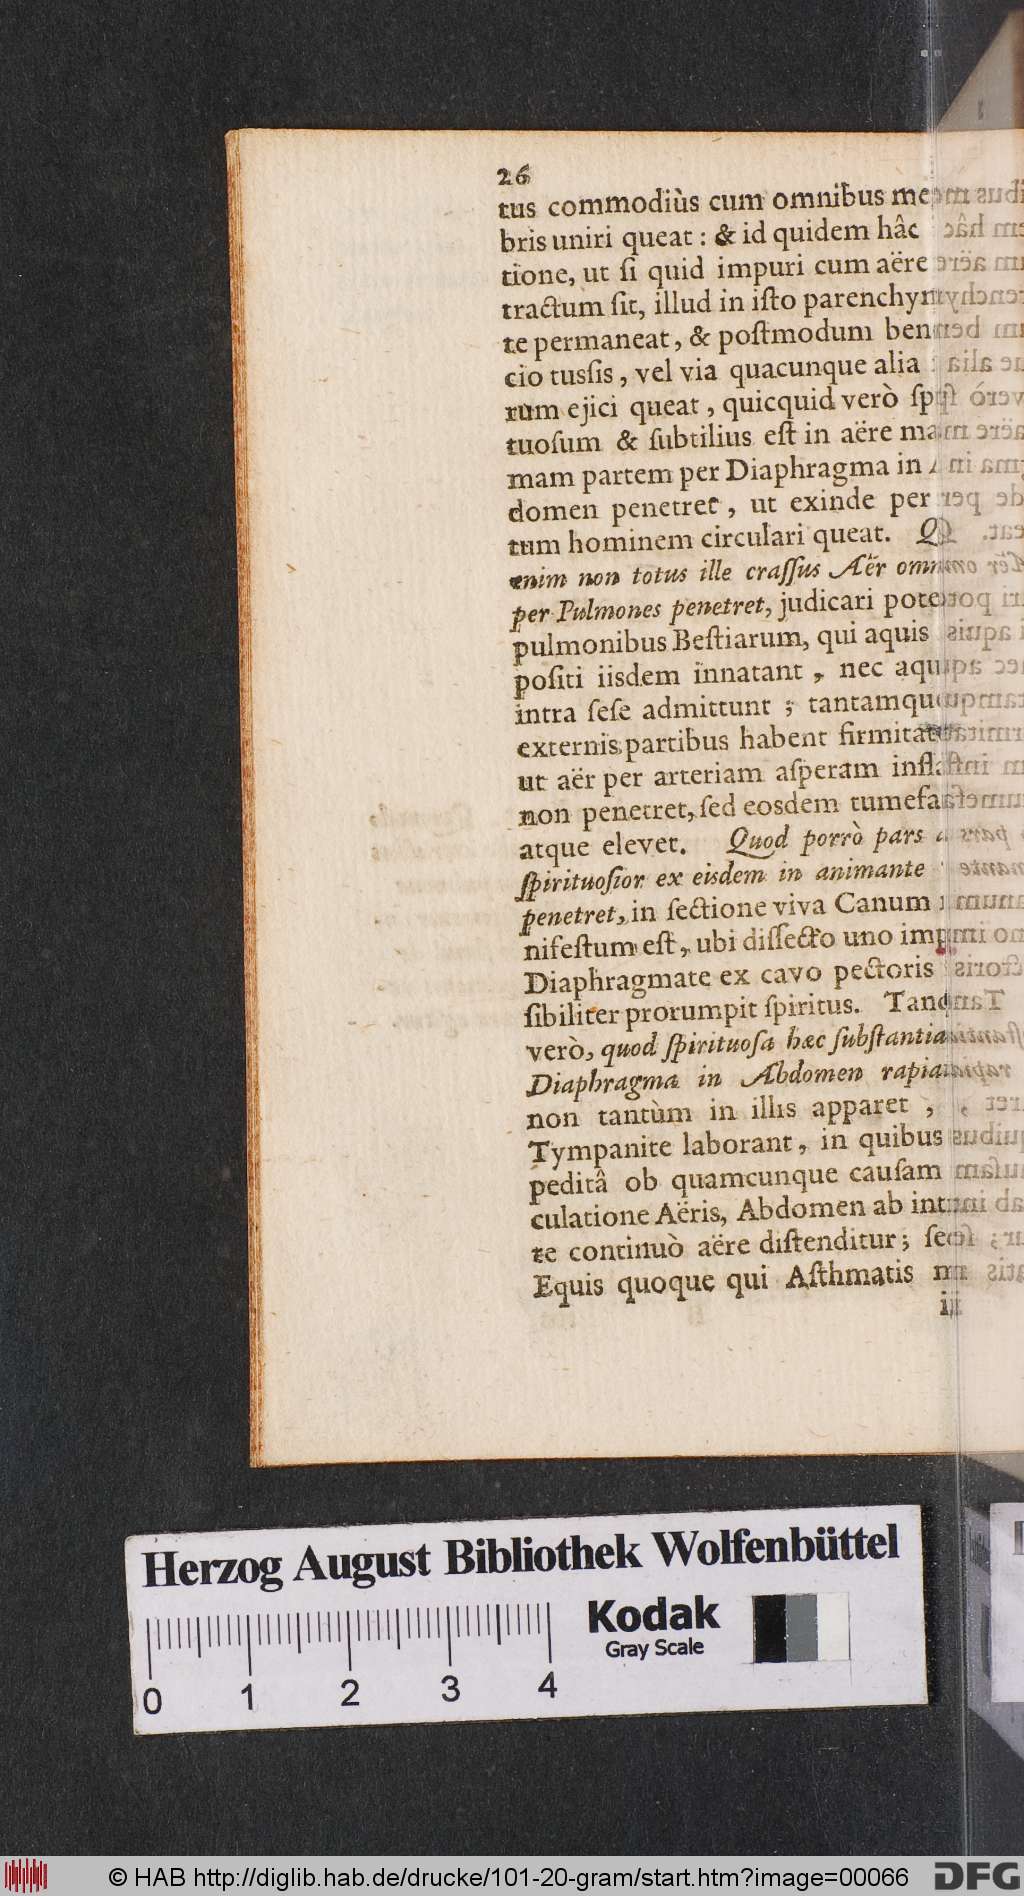 26
tus commodiùs cum omnibus me
bris uniri queat : & id quidem hâc
tione, ut ſi quid impuri cum aëre
tractum ſit, illud in iſto parenchym
te permaneat, & poſtmodum ben
cio tusſis, vel via quacunque alia
rum ejici queat, quicquid verò ſpi
tuoſum & ſubtilius eſt in aëre ma
mam partem per Diaphragma in
domen penetret, ut exinde per
tum hominem circulari queat. Q
enim non totus ille craſſus Aër omn
per Pulmones penetret, judicari pote
pulmonibus Beſtiarum, qui aquis
poſiti iisdem innatant, nec aqu
intra ſeſe admittunt ; tantamqu
externis partibus habent firmitat
ut aër per arteriam aſperam infla
non penetret, ſed eosdem tumefa
atque elevet. Quod porrò pars
ſpirituoſior ex eisdem in animante
penetret, in ſectione viva Canum
nifeſtum eſt, ubi diſſecto uno im
Diaphragmate ex cavo pectoris
ſibiliter prorumpit ſpiritus. Tand
verò, quod ſpirituoſa hæc ſubſtantia
Diaphragma in Abdomen rapia
non tantùm in illis apparet,
Tympanite laborant, in quibus
peditâ ob quamcunque cauſam
culatione Aëris, Abdomen ab int
te continuò aëre diſtenditur; ſed
Equis quoque qui Aſthmatis
Herzog August Bibliothek Wolfenbüttel
Kodak
Gray Scale
0 1 2 3 4
© HAB http://diglib.hab.de/drucke/101-20-gram/start.htm?image=00066 DFG